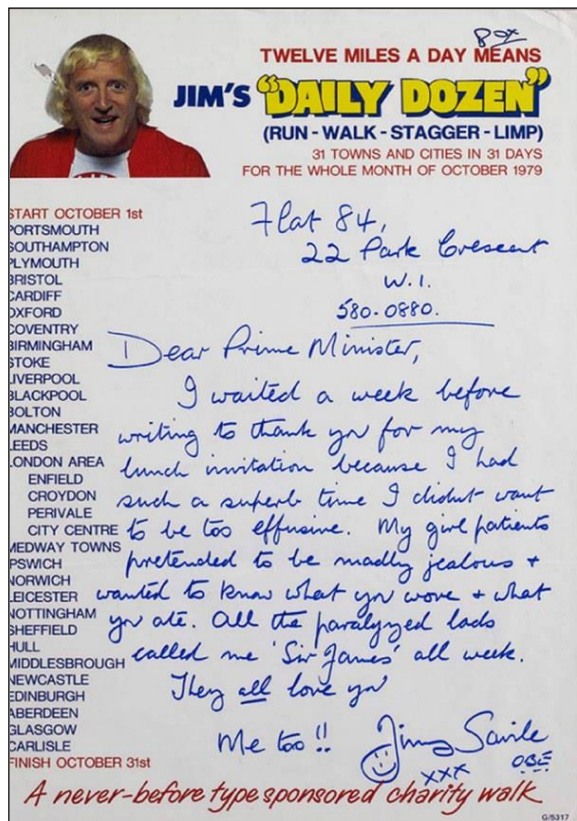 80x
TWELVE MILES A DAY MEANS
JIM'S "DAILY DOZEN"
(RUN - WALK - STAGGER - LIMP)
31 TOWNS AND CITIES IN 31 DAYS
FOR THE WHOLE MONTH OF OCTOBER 1979
START OCTOBER 1st
PORTSMOUTH
SOUTHAMPTON
PLYMOUTH
BRISTOL
CARDIFF
OXFORD
COVENTRY
BIRMINGHAM
STOKE
LIVERPOOL
BLACKPOOL
BOLTON
MANCHESTER
LEEDS
LONDON AREA
ENFIELD
CROYDON
PERIVALE
CITY CENTRE
MEDWAY TOWNS
IPSWICH
NORWICH
LEICESTER
NOTTINGHAM
SHEFFIELD
HULL
MIDDLESBROUGH
NEWCASTLE
EDINBURGH
ABERDEEN
GLASGOW
CARLISLE
FINISH OCTOBER 31st
Flat 84,
22 Park Crescent
W.1.
580-0880.
Dear Prime Minister,
I waited a week before
writing to thank you for my
lunch invitation because I had
such a superb time I didnt want
to be too effusive. My girl patients
pretended to be madly jealous +
wanted to know what you wore + what
you ate. All the paralyzed lads
called me 'Sir James' all week.
They all love you
Me too!!
Jimmy Savile
OBE
xxx
A never-before type sponsored charity walk
G/5317